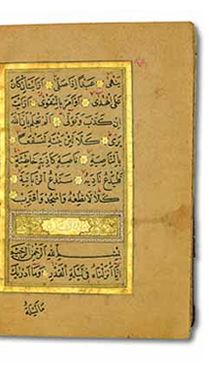 يَنْهٰى عَبْدًا اِذَا صَلّٰى اَرَاَيْتَ اِنْ كَانَ
عَلَى الْهُدٰى اَوْ اَمَرَ بِالتَّقْوٰى اَرَاَيْتَ
اِنْ كَذَّبَ وَتَوَلّٰى اَلَمْ يَعْلَمْ بِاَنَّ اللّٰهَ
يَرٰى كَلَّا لَئِنْ لَمْ يَنْتَهِ لَنَسْفَعًا
بِالنَّاصِيَةِ نَاصِيَةٍ كَاذِبَةٍ خَاطِئَةٍ
فَلْيَدْعُ نَادِيَهُ سَنَدْعُ الزَّبَانِيَةَ
كَلَّا لَا تُطِعْهُ وَاسْجُدْ وَاقْتَرِبْ
بِسْمِ اللّٰهِ الرَّحْمٰنِ الرَّحِيمِ
اِنَّا اَنْزَلْنَاهُ فِي لَيْلَةِ الْقَدْرِ وَمَا اَدْرٰيكَ
مَا لَيْلَةُ